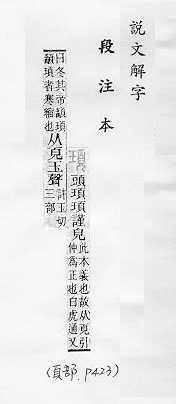 說文解字
段注本
頊 頭頊頊謹皃 此本義也故从頁引
伸爲正也白虎通又
曰冬其帝顓頊
顓頊者寒縮也 从頁玉聲 許玉切
三部
(頁部. p423)